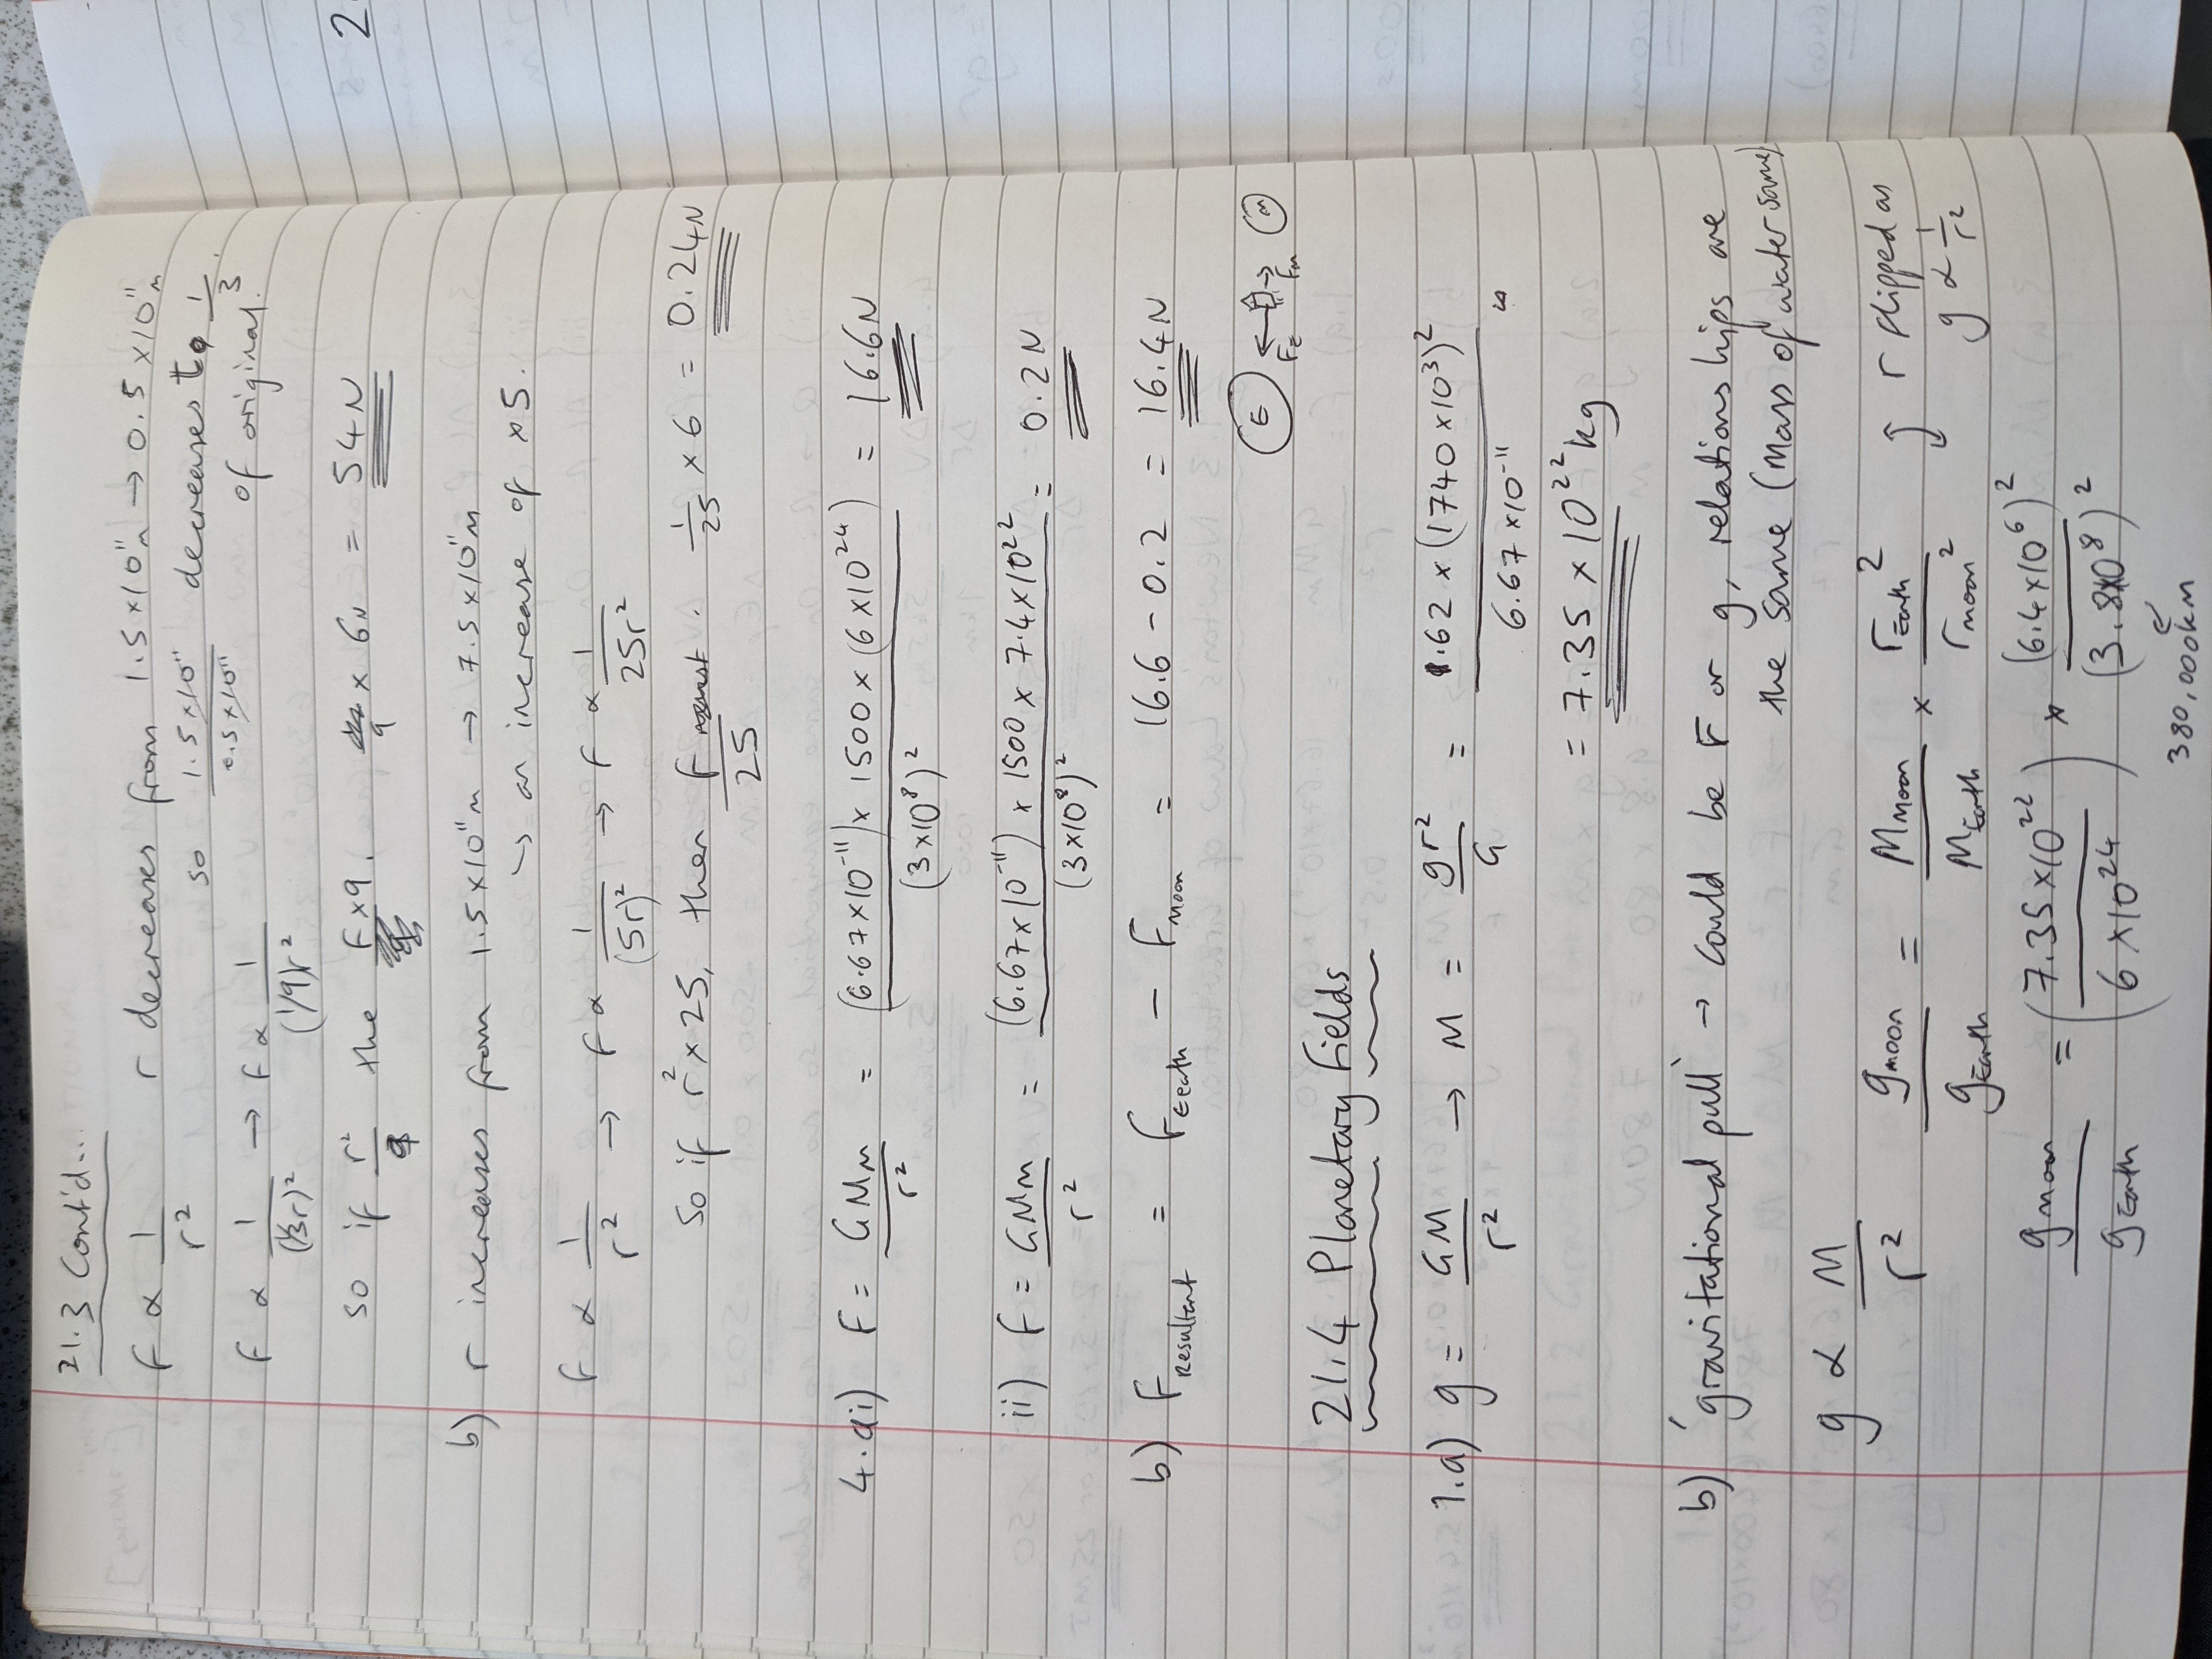 21.3 Cont'd...
F ∝ 1/r² r decreases from 1.5 × 10¹¹m → 0.5 × 10¹¹m
so 1.5 × 10¹¹/0.5 × 10¹¹ decreases to 1/3 of original.
F ∝ 1/(1/3r)² → F ∝ 1/(1/9)r²
so if r²/9 the F × 9. × 6N = 54N
b) r increases from 1.5 × 10¹¹m → 7.5 × 10¹¹m
→ an increase of × 5.
F ∝ 1/r² → F ∝ 1/(5r)² → F ∝ 1/25r²
so if r² × 25, then F/25. 1/25 × 6 = 0.24N
4.ai) F = GMm/r² = (6.67 × 10⁻¹¹) × 1500 × (6 × 10²⁴)/(3 × 10⁸)² = 16.6N
ii) F = GMm/r² = (6.67 × 10⁻¹¹) × 1500 × 7.4 × 10²²/(3 × 10⁸)² = 0.2N
b) F Resultant = F Earth − F Moon = 16.6 − 0.2 = 16.4N
E FE Fm m
21.4 Planetary Fields
1.a) g = GM/r² → M = gr²/G = 1.62 × (1740 × 10³)²/6.67 × 10⁻¹¹
= 7.35 × 10²² kg
b) 'gravitational pull' → could be F or g, relationships are
the same (mass of water same)
g ∝ M/r² g moon/g Earth = M Moon/M Earth × r Earth²/r moon² r flipped as g ∝ 1/r²
g moon/g Earth = (7.35 × 10²²/6 × 10²⁴) × (6.4 × 10⁶)²/(3.8 × 10⁸)²
380,000km
2